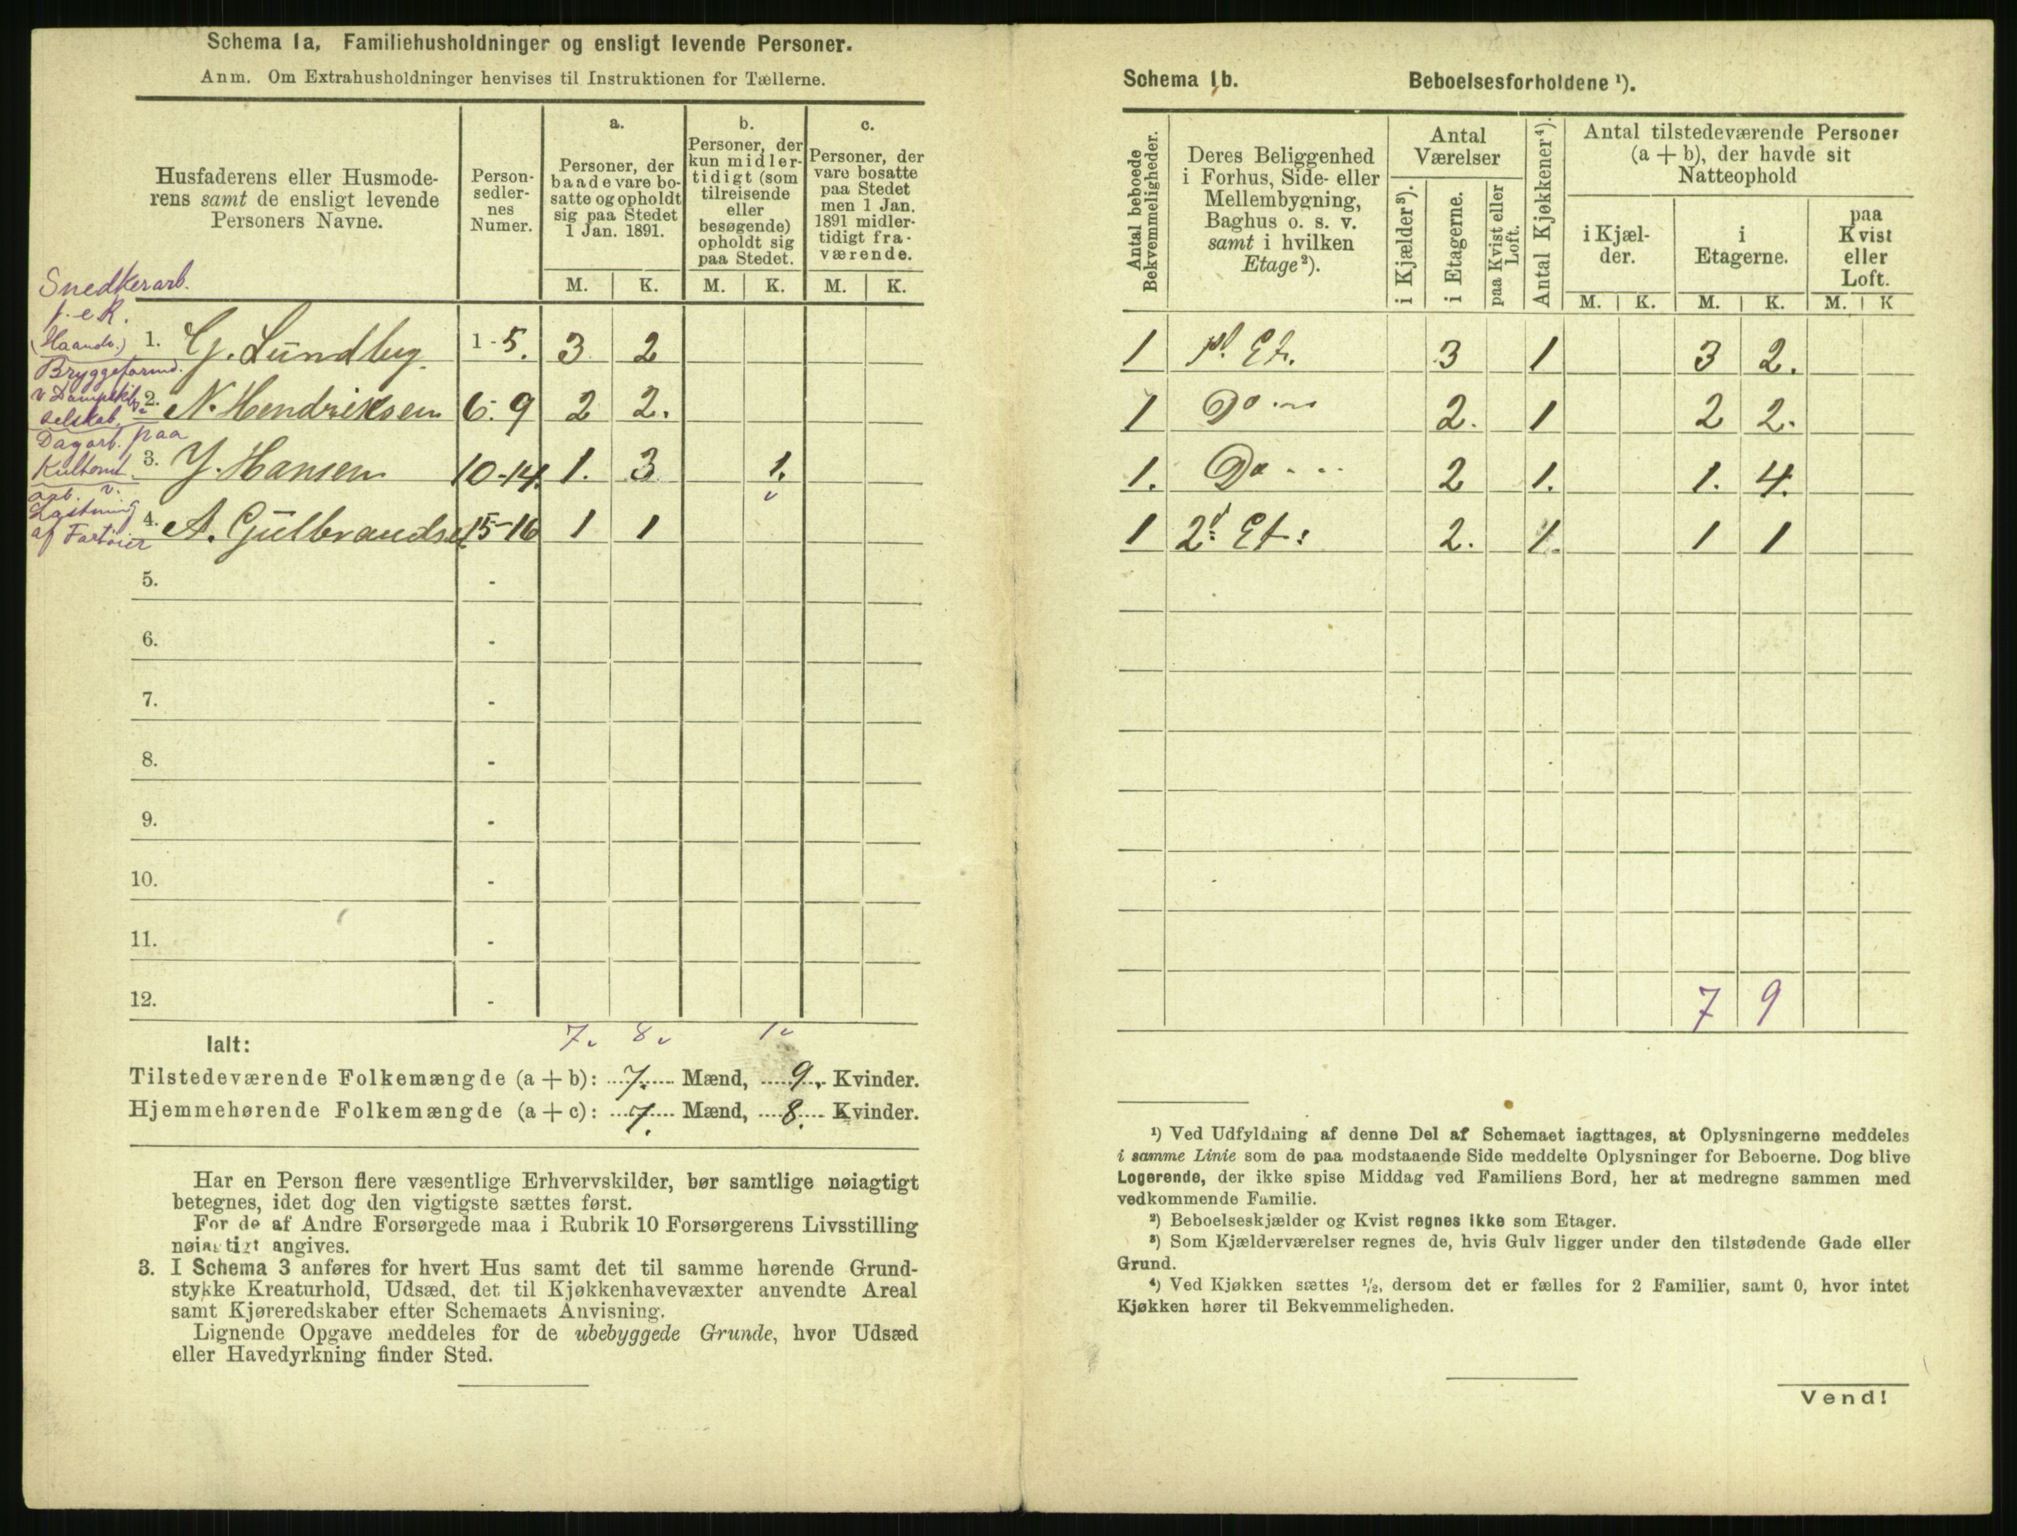 Schema 1a. Familiehusholdninger og ensligt levende Personer.
Anm. Om Extrahusholdninger henvises til Instruktionen for Tællerne.
Husfaderens eller Husmode-
rens samt de ensligt levende
Personers Navne.
Person-
sedler-
nes
Numer.
a.
Personer, der
baade vare bo-
satte og opholdt
sig paa Stedet
1 Jan. 1891.
b.
Personer, der
kun midler-
tidigt (som
tilreisende
eller
besøgende)
opholdt sig
paa Stedet.
c.
Personer, der
vare bosatte
paa Stedet
men 1 Jan.
1891 midler-
tidigt fra-
værende.
M. K. M. K. M. K.
Snedkerarb.
f. e R.
(Haandv.)
1. G. Lundby. 1-5. 3 2
Bryggeformd.
v Dampskibs-
selskab.
2. N. Hendriksen 6-9 2 2.
Dagarb. paa
Kultomt
3. Y. Hansen 10-14. 1. 3 1.
arb. v.
Lastning
af Fartøier
4. A. Gulbrandsen 15-16 1 1
5. -
6. -
7. -
8. -
9. -
10. -
11. -
12. -
Ialt: 7. 8. 1
Tilstedeværende Folkemængde (a + b): 7. Mænd, 9. Kvinder.
Hjemmehørende Folkemængde (a + c): 7. Mænd, 8. Kvinder.
Har en Person flere væsentlige Erhvervskilder, bør samtlige nøiagtigt
betegnes, idet dog den vigtigste sættes først.
For de af Andre Forsørgede maa i Rubrik 10 Forsørgerens Livsstilling
nøiagtigt angives.
3. I Schema 3 anføres for hvert Hus samt det til samme hørende Grund-
stykke Kreaturhold, Udsæd, det til Kjøkkenhavevæxter anvendte Areal
samt Kjøreredskaber efter Schemaets Anvisning.
Lignende Opgave meddeles for de ubebyggede Grunde, hvor Udsæd
eller Havedyrkning finder Sted.
Schema 1b. Beboelsesforholdene ¹).
Antal beboede
Bekvemmeligheder.
Deres Beliggenhed
i Forhus, Side- eller
Mellembygning,
Baghus o. s. v.
samt i hvilken
Etage²).
Antal
Værelser
i Kjælder³).
i Etagerne.
paa Kvist eller
Loft.
Antal Kjøkkener⁴).
Antal tilstedeværende Personer
(a + b), der havde sit
Natteophold
i Kjæl-
der.
i
Etagerne.
paa
Kvist
eller
Loft.
M. K. M. K. M. K
1 1st Et. 3 1 3 2.
1 Do 2. 1 2 2.
1. Do 2 1. 1. 4.
1 2d Et: 2. 1. 1 1
7 9
¹) Ved Udfyldning af denne Del af Schemaet iagttages, at Oplysningerne meddeles
i samme Linie som de paa modstaaende Side meddelte Oplysninger for Beboerne. Dog blive
Logerende, der ikke spise Middag ved Familiens Bord, her at medregne sammen med
vedkommende Familie.
²) Beboelseskjælder og Kvist regnes ikke som Etager.
³) Som Kjælderværelser regnes de, hvis Gulv ligger under den tilstødende Gade eller
Grund.
⁴) Ved Kjøkken sættes ¹/₂, dersom det er fælles for 2 Familier, samt 0, hvor intet
Kjøkken hører til Bekvemmeligheden.
Vend!